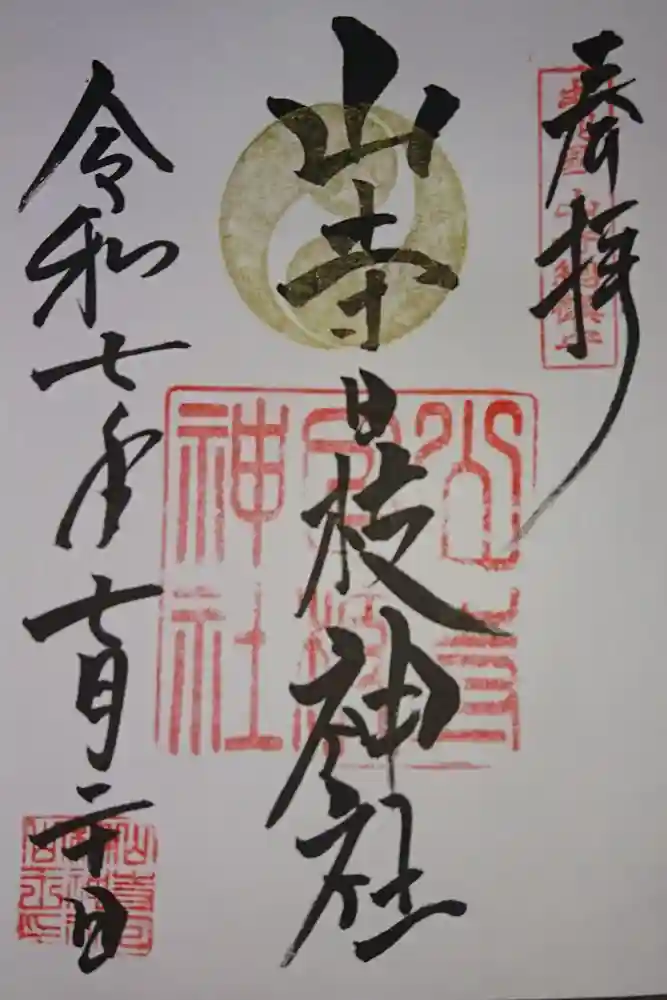 奉拝
山寺日枝神社
令和七年七月二十日
山寺日枝神社